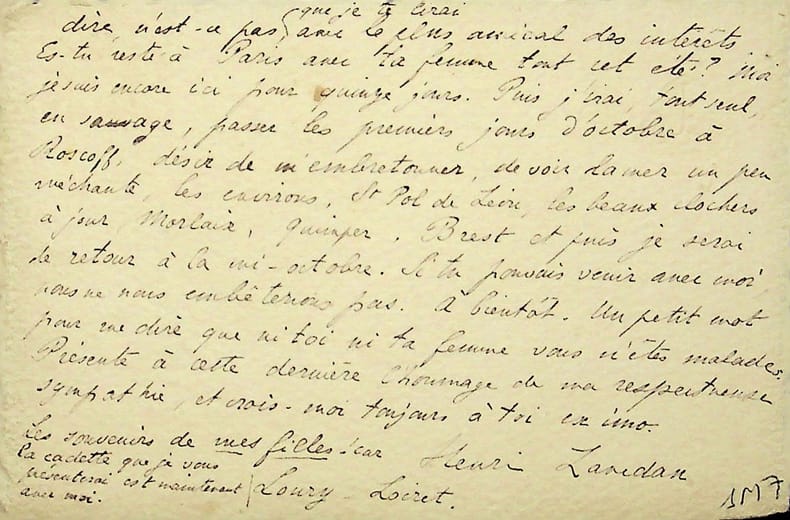 que je te lirai
dire, n'est-ce pas avec le plus amical des intérêts
Es-tu resté à Paris avec ta femme tout cet été? Moi
je suis encore ici pour quinze jours. Puis j'irai, tout seul,
en sauvage, passer les premiers jours d'octobre à
Roscoff, désir de m'embretonner, de voir la mer un peu
méchante, les environs, St Pol de Léon, les beaux clochers
à jour, Morlaix, Quimper, Brest et puis je serai
de retour à la mi-octobre. Si tu pouvais venir avec moi,
nous ne nous embêterions pas. A bientôt. Un petit mot
pour me dire que ni toi ni ta femme vous n'êtes malades.
Présente à cette dernière l'hommage de ma respectueuse
sympathie, et crois-moi toujours à toi ex imo.
Les souvenirs de mes filles! car
la cadette que je vous
présenterai est maintenant
avec moi.
Henri Lavedan
Loury-Loiret.